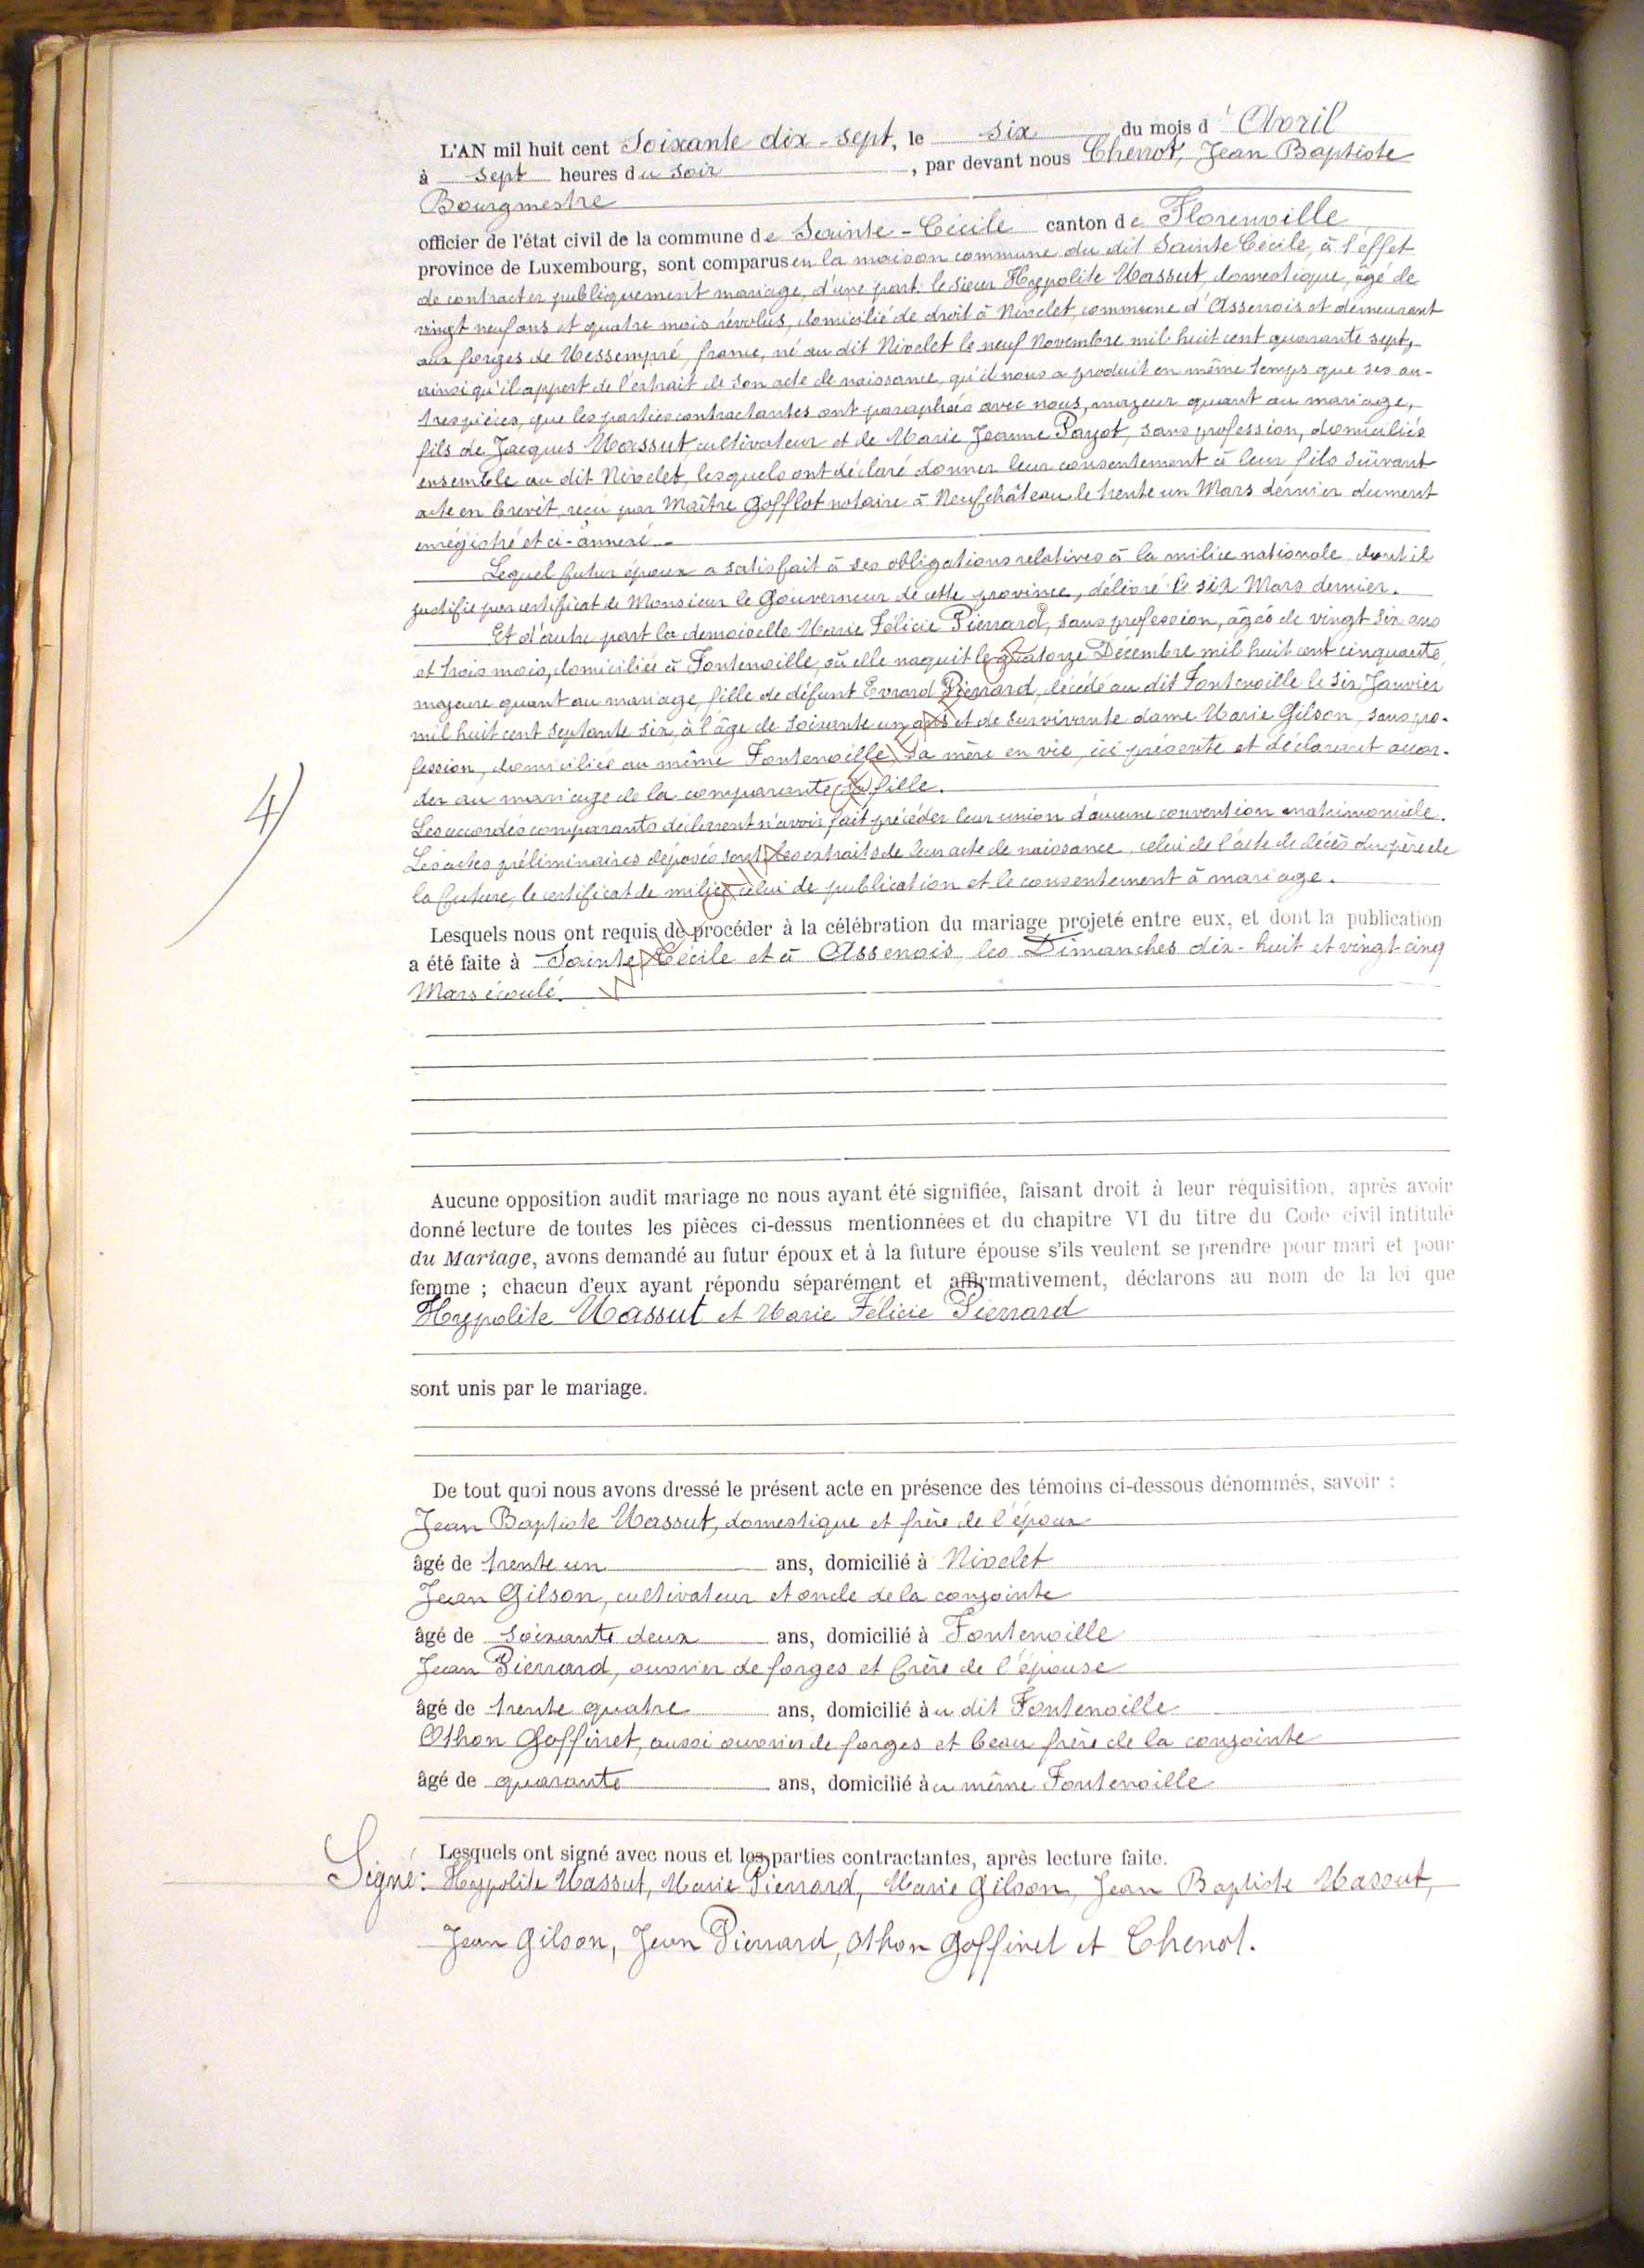 L'AN mil huit cent Soixante dix-sept, le six du mois d'Avril
à sept heures du soir, par devant nous Chenot, Jean Baptiste
Bourgmestre
officier de l'état civil de la commune de Sainte-Cécile canton de Florenville
province de Luxembourg, sont comparus en la maison commune du dit Sainte Cécile, à l'éffet
de contracter publiquement mariage, d'une part: le sieur Hypolite Massut, domestique, âgé de
vingt neuf ans et quatre mois révolus, domicilié de droit à Nivelet, commune d'Assenois et demeurant
aux forges de Messempré, france, né au dit Nivelet le neuf Novembre mil huit cent quarante sept,
ainsi qu'il appert de l'extrait de son acte de naissance, qu'il nous a produit en même temps que ses au-
tres pièces, que les parties contractantes ont paraphées avec nous, majeur quant au mariage,
fils de Jacques Massut, cultivateur et de Marie Jeanne Payot, sans profession, domiciliés
ensemble au dit Nivelet, lesquels ont déclaré donner leur consentement à leur fils suivant
acte en brevêt, reçu par Maître Gofflot notaire à Neufchâteau le trente un Mars dérnier dument
enrégistré et ci-annexé.
Lequel futur époux a satisfait à ses obligations relatives à la milice nationale, dont il
justifie par certificat de Monsieur le Gouverneur de cette province, délivré le six Mars dernier.
Et d'autre part la demoiselle Marie Félicie Pierrard, sans profession, âgée de vingt six ans
et trois mois, domiciliée à Fontenoille, où elle naquit le quatorze Décembre mil huit cent cinquante,
majeure quant au mariage, fille de défunt Evrard Pierrard, décédé au dit Fontenoille le six Janvier
mil huit cent septante six, à l'âge de soixante un ans et de survivante dame Marie Gilson, sans pro-
fession, domiciliée au même Fontenoille, sa mère en vie, ici présente et déclarant accor-
der au mariage de la comparante sa fille.
Les accordés comparants déclarent n'avoir fait précéder leur union d'aucune convention matrimoniale.
Les actes préliminaires déposés sont les extraits de leur acte de naissance, celui de l'acte de décès du père de
la future, le certificat de milice, celui de publication et le consentement à mariage.
Lesquels nous ont requis de procéder à la célébration du mariage projeté entre eux, et dont la publication
a été faite à Sainte Cécile et à Assenois, les Dimanches dix-huit et vingt-cinq
Mars écoulé.
4)
Aucune opposition audit mariage ne nous ayant été signifiée, faisant droit à leur réquisition, après avoir
donné lecture de toutes les pièces ci-dessus mentionnées et du chapitre VI du titre du Code civil intitulé
du Mariage, avons demandé au futur époux et à la future épouse s'ils veulent se prendre pour mari et pour
femme ; chacun d'eux ayant répondu séparément et affirmativement, déclarons au nom de la loi que
Hypolite Massut et Marie Félicie Pierrard
sont unis par le mariage.
De tout quoi nous avons dressé le présent acte en présence des témoins ci-dessous dénommés, savoir :
Jean Baptiste Massut, domestique et frère de l'époux
âgé de trente un ans, domicilié à Nivelet
Jean Gilson, cultivateur et oncle de la conjointe
âgé de soixante deux ans, domicilié à Fontenoille
Jean Pierrard, ouvrier de forges et frère de l'épouse
âgé de trente quatre ans, domicilié au dit Fontenoille
Othon Goffinet, aussi ouvrier de forges et beau frère de la conjointe
âgé de quarante ans, domicilié au même Fontenoille
Lesquels ont signé avec nous et les parties contractantes, après lecture faite.
Signé: Hypolite Massut, Marie Pierrard, Marie Gilson, Jean Baptiste Massut,
Jean Gilson, Jean Pierrard, Othon Goffinet et Chenot.